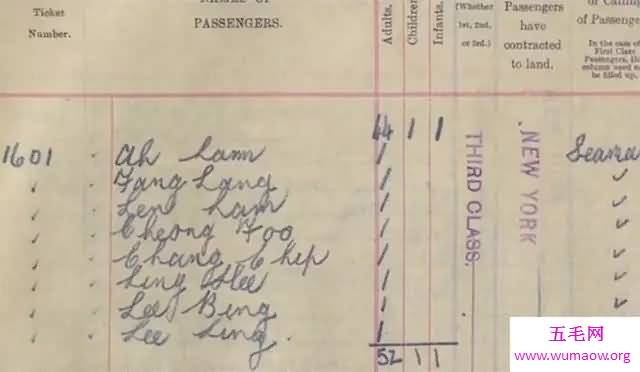 Ticket Number.
NAMES OF PASSENGERS.
Adults.
Children
Infants.
(Whether 1st, 2nd, or 3rd.)
Passengers have contracted to land.
of Passenge
In the case of First Class Passengers, this column need not be filled up.
44 1 1
1601 Ah Lam 1 Seama
Fang Lang 1
Len Lam 1
Cheong Foo 1
Chang Chip 1
Ling Hee 1
Lee Bing 1
Lee Ling. 1
52 1 1
THIRD CLASS.
NEW YORK
五毛网
www.wumaow.org